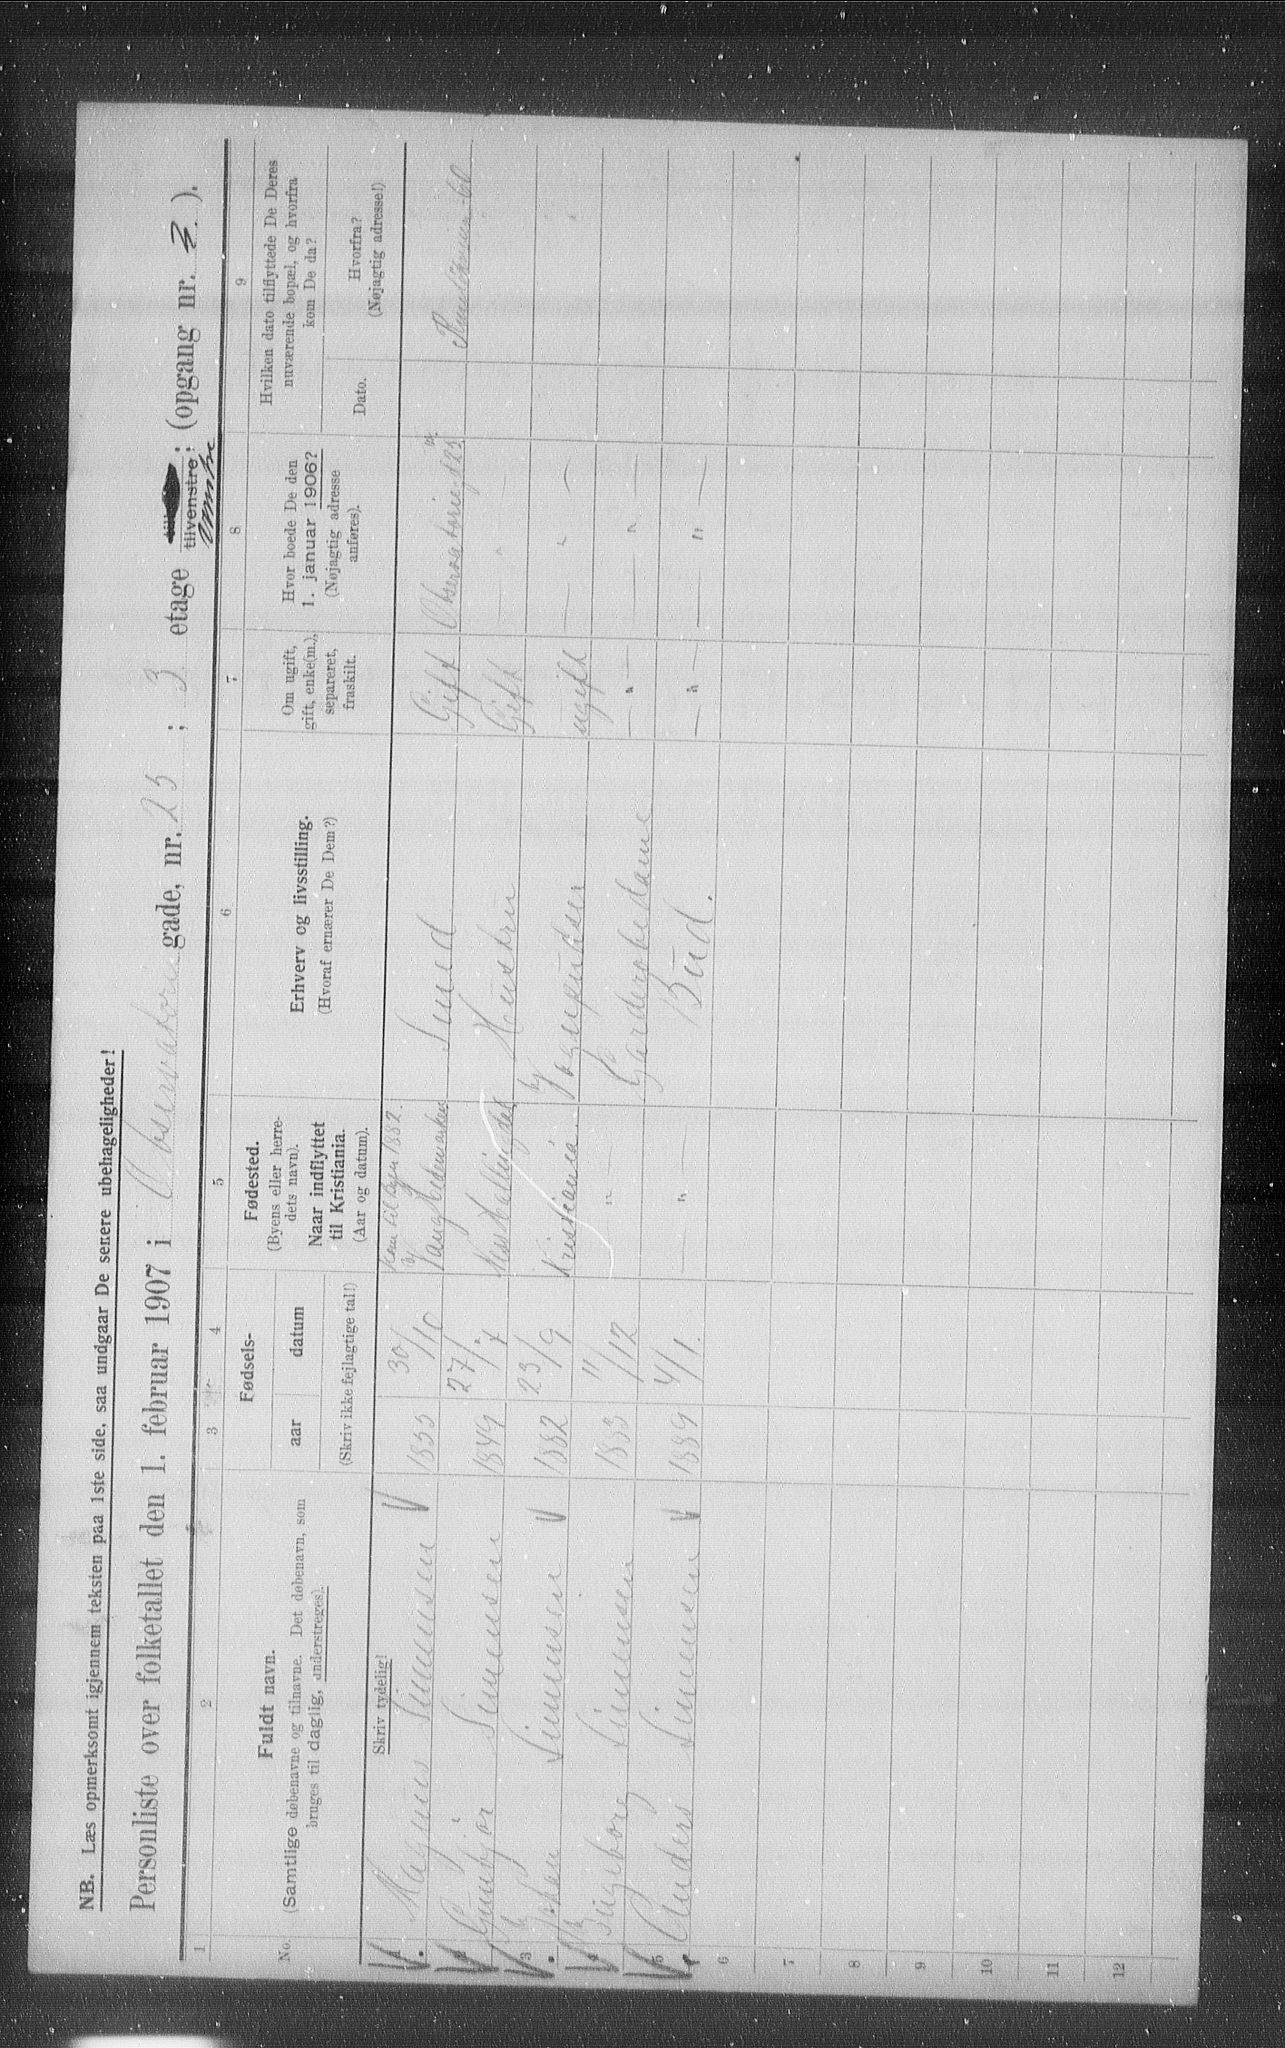 NB. Læs opmerksomt igjennem teksten paa 1ste side, saa undgaar De senere ubehageligheder!
Personliste over folketallet den 1. februar 1907 i Observatorie gade, nr. 25 ; 3 etage tilvenstre; (opgang nr. 2. ).
1 2 3 4 5 6 7 8 9
No.
Fuldt navn.
(Samtlige døbenavne og tilnavne. Det døbenavn, som
bruges til daglig, understreges).
Fødsels-
aar datum
(Skriv ikke fejlagtige tal!)
Fødested.
(Byens eller herre-
dets navn).
Naar indflyttet
til Kristiania.
(Aar og datum).
Erhverv og livsstilling.
(Hvoraf ernærer De Dem?)
Om ugift,
gift, enke(m.),
separeret,
fraskilt.
Hvor boede De den
1. januar 1906?
(Nøjagtig adresse
anføres).
Hvilken dato tilflyttede De Deres
nuværende bopæl, og hvorfra
kom De da?
Dato.
Hvorfra?
(Nøjagtig adresse!)
Skriv tydelig!
1 Magnus Simensen 1855 30/10 til Byen 1882. Vang Hedemarken Smed Gift Observatoriegd 25
2 Gunbjør Simensen 1849 27/7 Hallingdal Hustru Gift — " —
3 Johan Simensen 1882 23/9 Kristiania. ugift — " —
4 Ingeborg Simensen 1883 11/12 — " — Garderobedame — " — — " —
5 Anders Simensen 1889 4/1. — " — Bud. — " — — " —
6
7
8
9
10
11
12